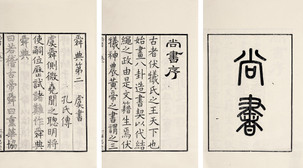 尚書
尚書序
古者伏犧氏之王天下也
始畫八卦造書契以代結
繩之政由是文籍生焉伏
犧神農黃帝之書謂之三
舜典第二 虞書
孔氏傳
虞舜側微堯聞之聰明將
使嗣位歷試諸難作舜典
曰若稽古帝舜曰重華協